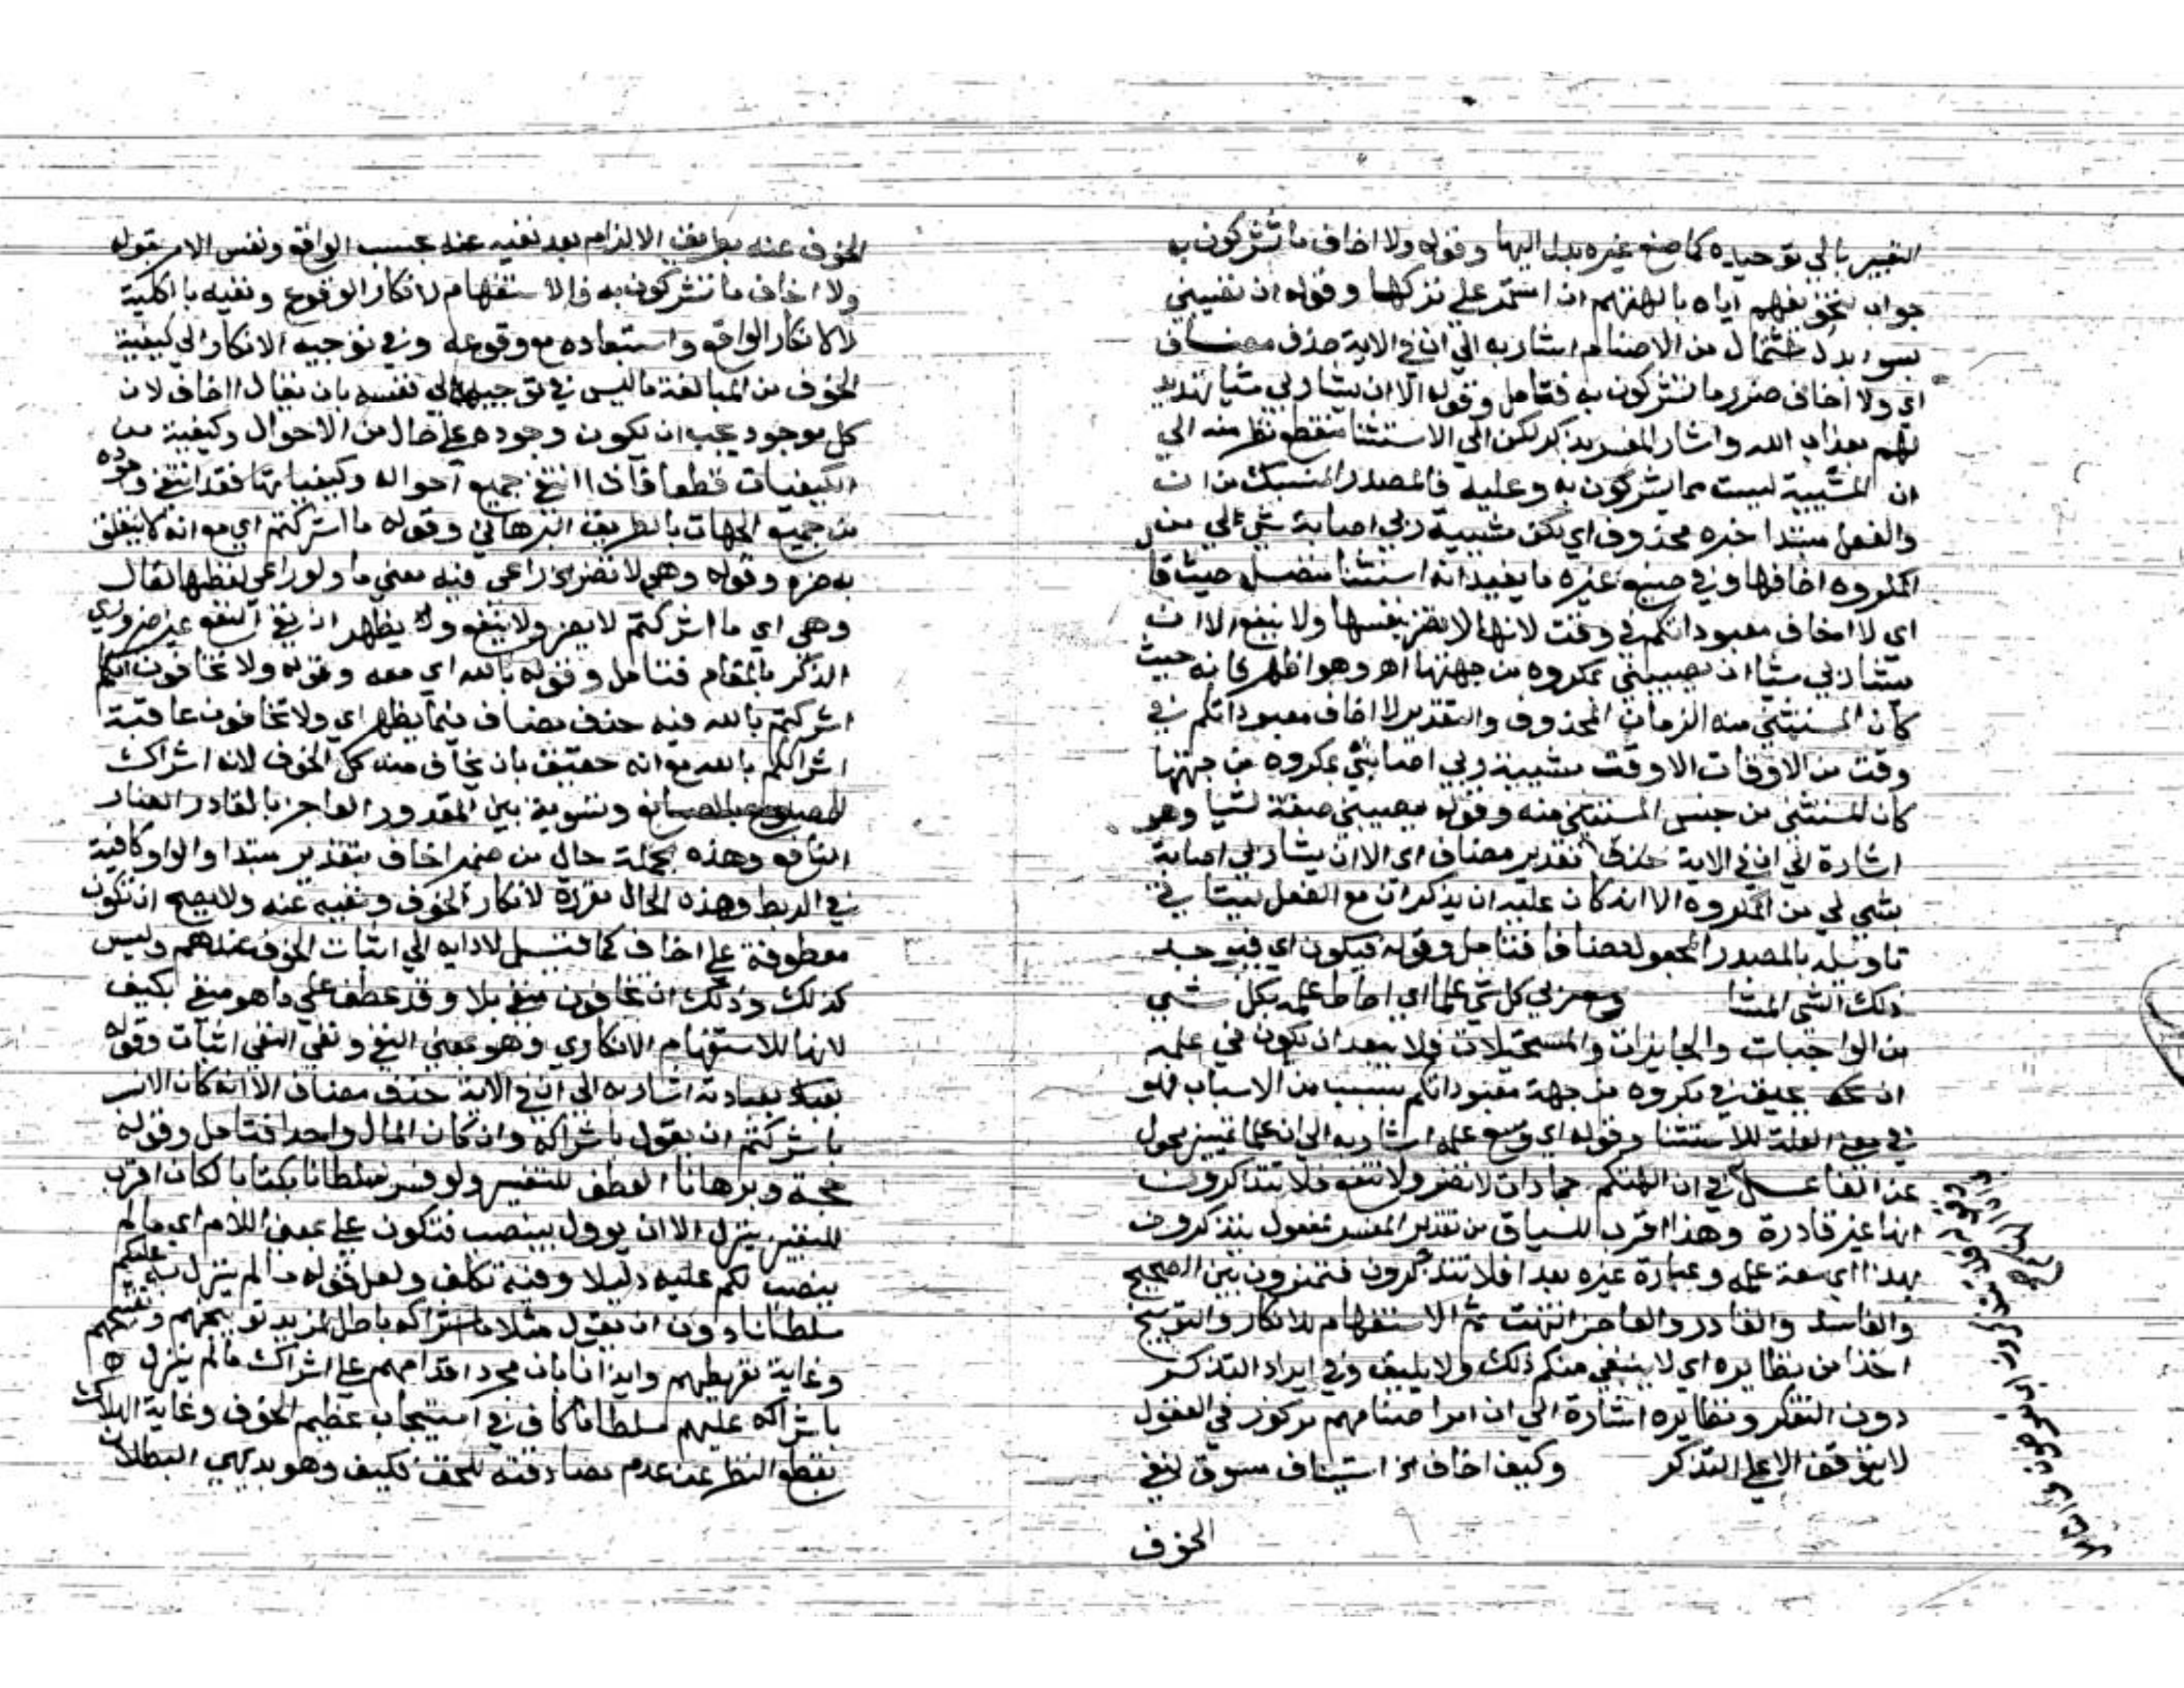 التعبير بالي توحيده كما صنع غيره بدل اليها وقوله ولا اخاف ما تشركون به
جواب تخويفهم اياه بالهتهم ان استمر على تركها وقوله ان تصيبني
بسوء بدل اشتمال من الاصنام اشار به الي ان في الاية حذف مضاف
اي ولا اخاف ضرر ما تشركون به فتامل وقوله الا ان يشا ربي شيا تهديد
لهم بعذاب الله واشار المفسر بذكر لكن الي الاستثنا منقطع نظر منه الي
ان المشيية ليست مما يشركون به وعليه فالمصدر المنسبك من ان
والفعل مبتدا خبره محذوف اي لكن مشيية ربي اصابة شي لي من
المكروه اخافها وفي صنيع غيره ما يفيد انه استثنا متصل حيث قا
اي لا اخاف معبوداتكم في وقت لانها لا تضر بنفسها ولا تنفع الا ان
يشا ربي شيا ان يصيبني بمكروه من جهتها اهر وهو اظهر كانه حيث
كان المستثني منه الزمان المحذوف والتقدير لا اخاف معبوداتكم في
وقت من الاوقات الا وقت مشيية ربي اصابتي بمكروه من جهتها
كان المستثني من جنس المستثني منه وقوله يصيبني صفة لشيا وهو
اشارة الي ان في الاية حذف تقدير مضاف اي الا ان يشا ربي اصابة
بشي لي من المكروه الا انه كان عليه ان يذكر ان مع الفعل ليتا تي
تاويله بالمصدر المجعول مضافا فتامل وقوله فيكون اي فيوجد
ذلك الشي المشا وسع ربي كل شي علما اي احاط علمه بكل شي
من الواجبات والجايزات والمستحيلات فلا يبعد ان يكون في علمه
ان يحيق بي مكروه من جهة معبوداتكم بسبب من الاسباب فهو
في معني العلة للاستثنا وقوله اي وسع علمه اشار به الي ان علما تمييز محول
عن الفاعل في ان الهتكم جمادات لا تضر ولا تنفع فلا تتذكرون
انها غير قادرة وهذا اقرب للسياق من تقدير المفسر مفعول يتذكرون
بهذا اي سعة علمه وعبارة غيره بعد افلا تتذكرون فتميزون بين الصحيح
والفاسد والقادر والعاجز انتهت ثم الاستفهام للانكار والتوبيخ
اخذا من نظايره اي لا ينبغي منكم ذلك ولا يليق وفي ايراد التذكر
دون التفكر ونظايره اشارة الي ان امر اصنامهم مركوز في العقول
لا يتوقف الا علي التذكر وكيف اخاف الخ استيناف مسوق لنفي
الخوف
الخوف عنه بطريق الالزام بعد نفيه عنه بحسب الواقع ونفس الامر بقوله
ولا اخاف ما تشركون به فالاستفهام لانكار الوقوع ونفيه بالكلية
لا لانكار الواقع واستبعاده مع وقوعه وفي توجيه الانكار الي كيفية
الخوف من المبالغة ما ليس في توجيهه الي نفسه بان يقال ااخاف لان
كل موجود يجب ان يكون وجوده على حال من الاحوال وكيفية من
الكيفيات قطعا فاذا انتفي جميع احواله وكيفياتها فقد انتفي وجوده
من جميع الجهات بالطريق البرهاني وقوله ما اشركتم اي مع انه لا يتعلق
به ضره وقوله وهي لا تضر الخ راعي فيه معني ما ولو راعي لفظها لقال
وهي اي ما اشركتم لا يضر ولا ينفع ولا يظهر ان نفي النفع غير ضروري
الذكر بالمقام فتامل وقوله بالله اي معه وقوله ولا تخافون انكم
اشركتم بالله فيه حذف مضاف فيما يظهر اي ولا تخافون عاقبة
اشراككم بالله مع انه حقيق بان يخاف منه كل الخوف لانه اشراك
للمصنوع بالصانع وتسوية بين المقدور العاجز بالقادر الضار
النافع وهذه الجملة حال من ضمير اخاف بتقدير مبتدا والواو كافية
في الربط وهذه الحال مقررة لانكار الخوف ونفيه عنه ولا يصح ان تكون
معطوفة علي اخاف كما قيل لادايه الي اثبات الخوف عندهم وليس
كذلك وذلك ان تخافون منفي بلا وقد عطف علي ما هو منفي بكيف
لانها للاستفهام الانكاري وهو بمعني النفي ونفي النفي اثبات وقوله
بعبادته اشار به الي ان في الاية حذف مضاف الا انه كان الانسب
باشركتم ان يقول باشراكه وان كان المال واحدا فتامل وقوله
حجة وبرهانا العطف للتفسير ولو فسر سلطانا بكتابا لكان اقرب
للتفسير بينزل الا ان يوول بينصب فتكون علي بمعني اللام اي ما لم
ينصب لكم عليه دليلا وفيه تكلف ولعل قوله ما لم ينزل به عليكم
سلطانا دون ان يقول مثلا باشراكه باطل لمزيد توبيخهم
وغاية تفريطهم وايذانا بان مجرد اقدامهم علي اشراك ما لم ينزل
باشراكه عليهم سلطانا كاف في استيجاب عظيم الخوف وغاية الهلاك
بقطع النظر عن عدم مصادفته للحق فكيف وهو بديهي البطلان